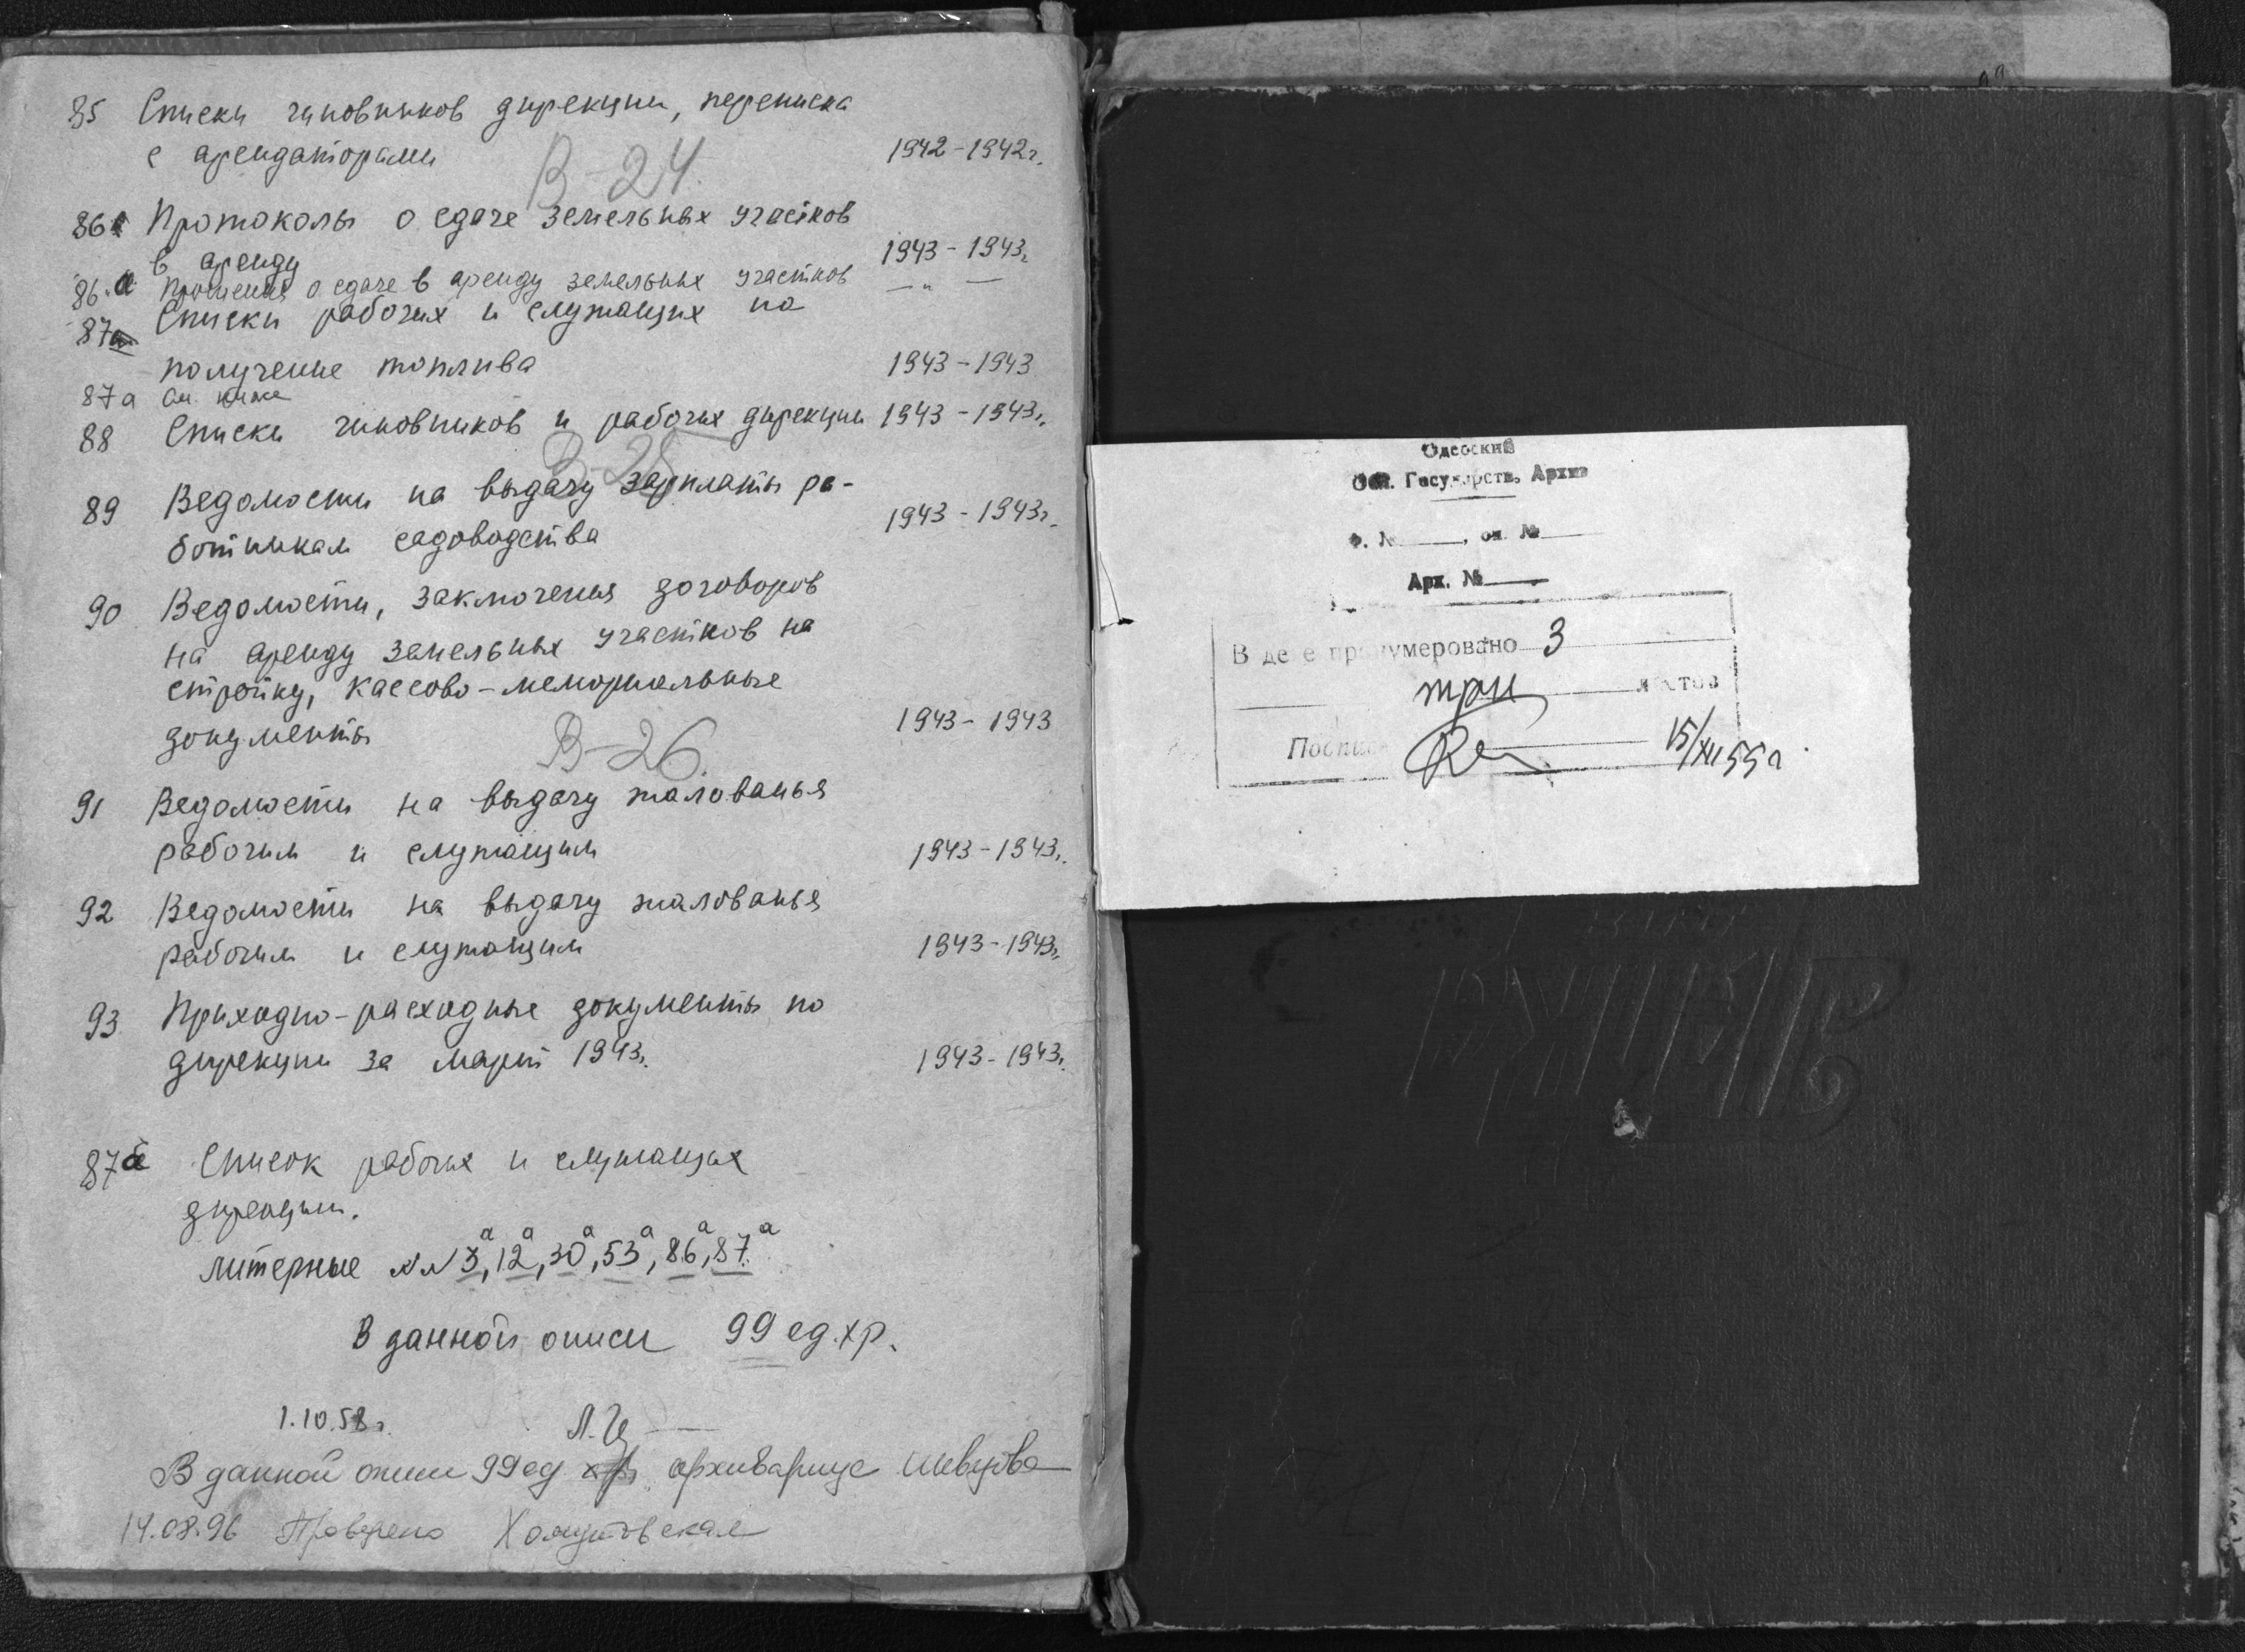 85 Списки чиновников дирекции, переписка
с арендаторами 1942-1942г.
В-24.
86 Протоколы о сдаче земельных участков
в аренду 1943-1943г.
86.а Прошения о сдаче в аренду земельных участков —"—
87 Списки рабочих и служащих на
получение топлива 1943-1943
87а См. ниже
88 Списки чиновников и рабочих дирекции 1943-1943г.
В-25
89 Ведомости на выдачу зарплаты ра-
ботникам садоводства 1943-1943г.
90 Ведомости, заключения договоров
на аренду земельных участков на
стройку, кассово-мемориальные
документы 1943-1943
В-26.
91 Ведомости на выдачу жалованья
рабочим и служащим 1943-1943г.
92 Ведомости на выдачу жалованья
рабочим и служащим 1943-1943г.
93 Приходно-расходные документы по
дирекции за март 1943г. 1943-1943г.
87а Список рабочих и служащих
дирекции.
Литерные №№ 3а, 12а, 30а, 53а, 86а, 87а
В данной описи 99 ед.хр.
1.10.58г.
В данной описи 99 ед хр. архивариус Шевцова
14.08.96 Проверено
Одесский
Обл. Государств. Архив
Ф. № , оп. №
Арх. №
В деле пронумеровано 3
три листов
Подпись 15/XII 55г